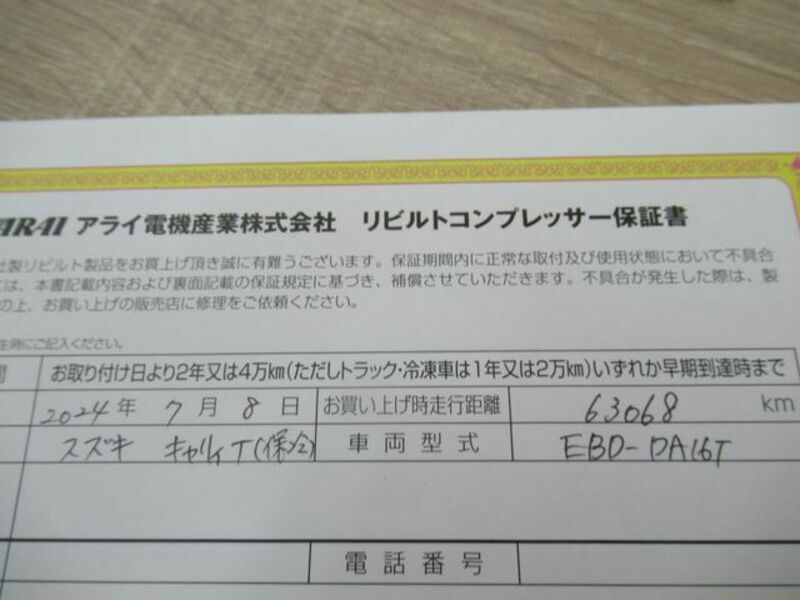 ARAI アライ電機産業株式会社 リビルトコンプレッサー保証書
社製リビルト製品をお買上げ頂き誠に有難うございます。保証期間内に正常な取付及び使用状態において不具合
は、本書記載内容および裏面記載の保証規定に基づき、補償させていただきます。不具合が発生した際は、製
の上、お買い上げの販売店に修理をご依頼ください。
生時にご記入ください。
間 お取り付け日より2年又は4万km(ただしトラック・冷凍車は1年又は2万km)いずれか早期到達時まで
2024年 7月 8日 お買い上げ時走行距離 63068 km
スズキ キャリィT(保冷) 車両型式 EBD-DA16T
電話番号